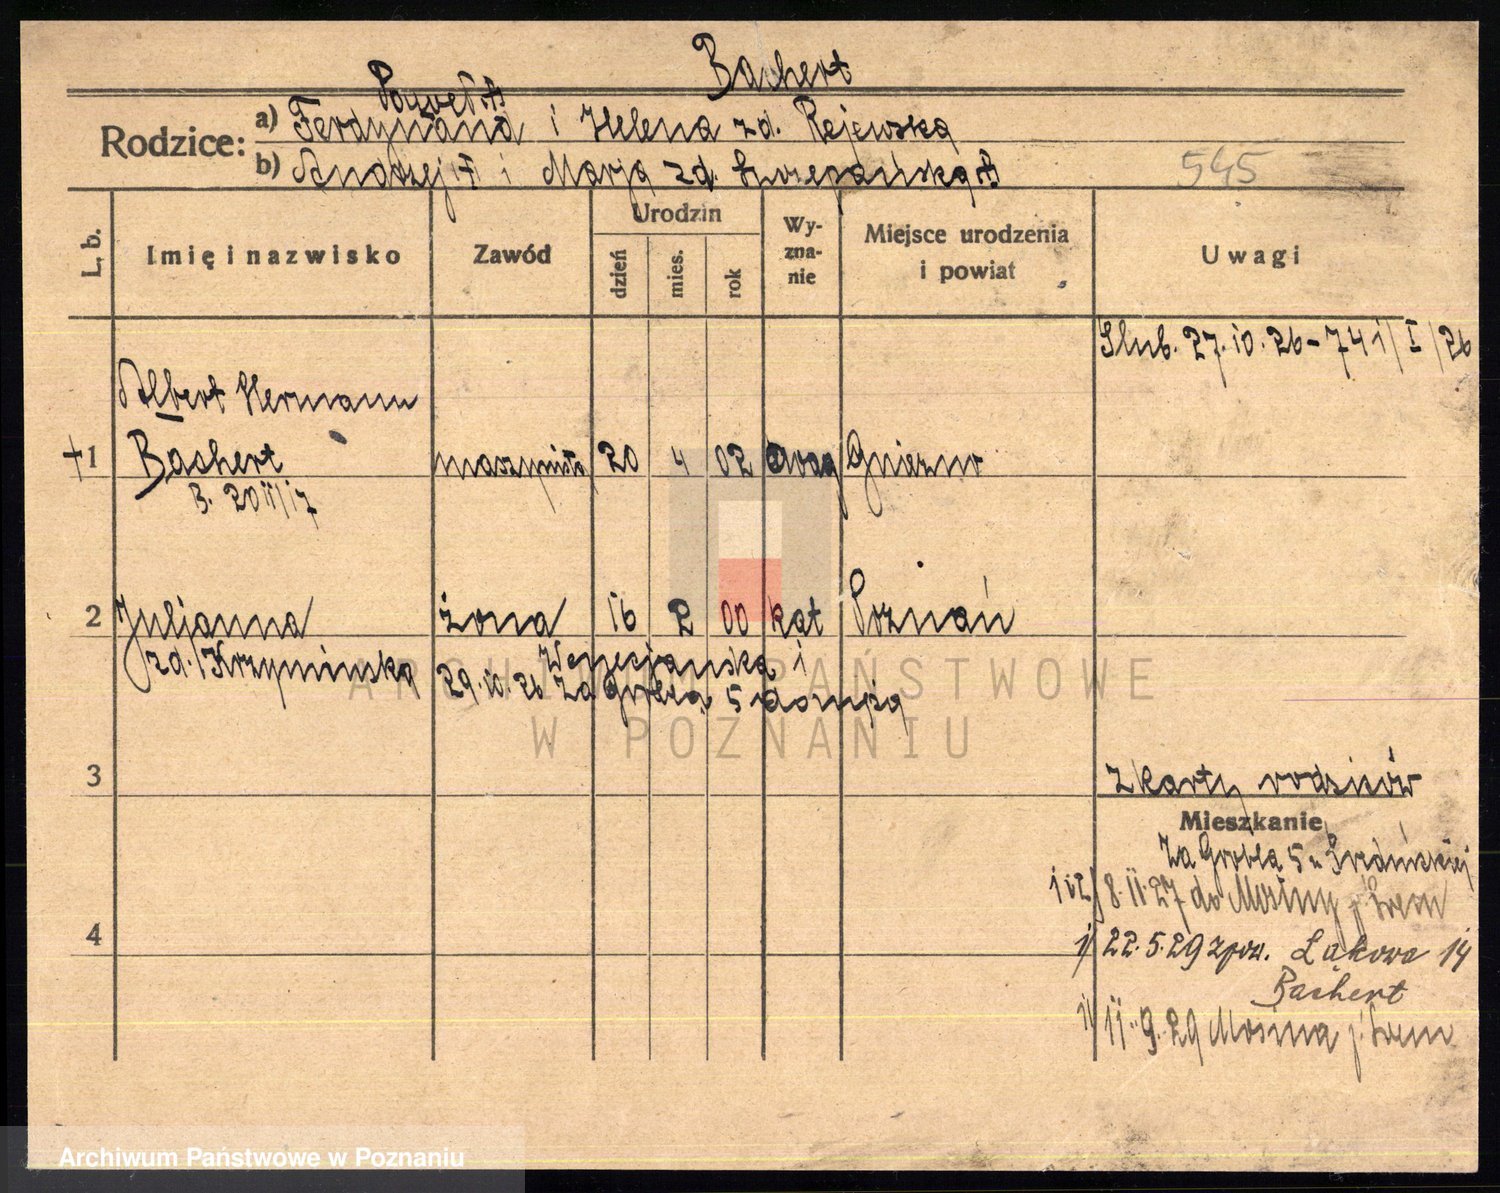 Bachert
Paweł ✝
Rodzice: a) Ferdynand i Helena zd. Rejewska
b) Andrzej ✝ i Marja zd. Szczepańska ✝
545
L. b. Imię i nazwisko Zawód Urodzin Wyznanie Miejsce urodzenia i powiat Uwagi
dzień mies. rok
Ślub. 27.10.26 – 741/I/26
Albert Hermann
+1 Bachert maszynista 20 4 02 ewag Gniezno
B. 20 11/17
2 Juljanna żona 16 2 00 kat Poznań
zd. Krzymińska
29.10.26 Za Groblą 5
ARCHIWUM PAŃSTWOWE
W POZNANIU
3 z karty rodziców
Mieszkanie
Za Groblą 5
1 i 2) 8.11.27 do Mosiny p. Śrem
4
1) 22.5.29 z pow. Łąkowa 14
Bachert
1) 11.9.29 Mosina p. Śrem
Archiwum Państwowe w Poznaniu